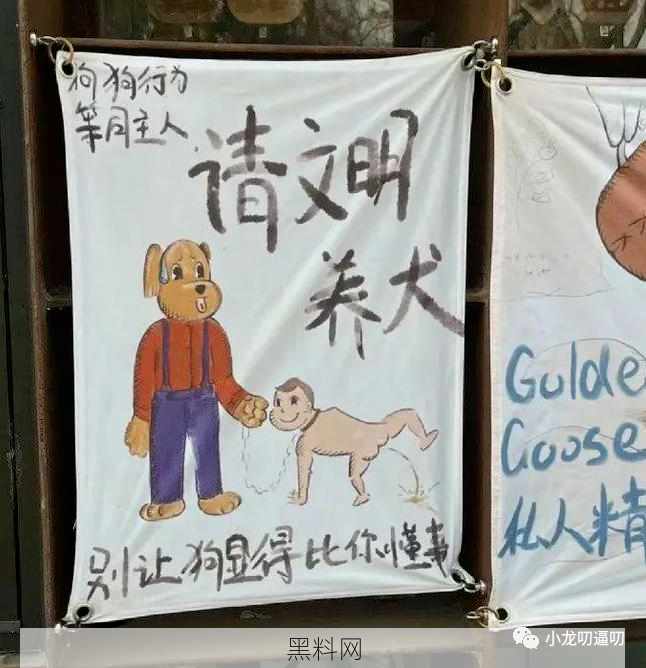 狗狗行为
等同主人
请文明
养犬
别让狗显得比你懂事
Gulde
Goose
私人精
黑料网
小龙叨逼叨